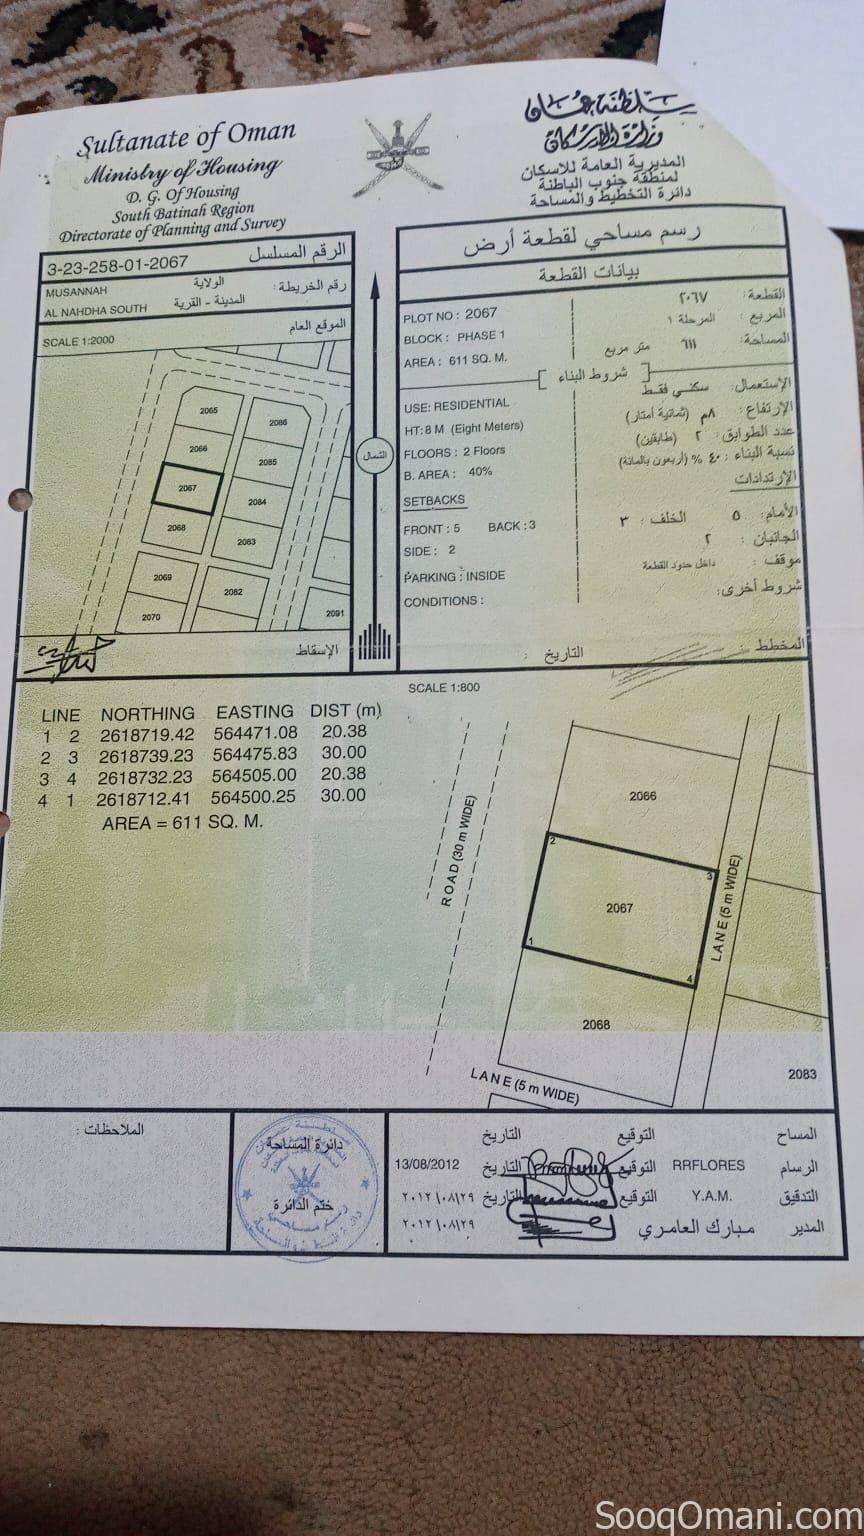 Sultanate of Oman
Ministry of Housing
D. G. Of Housing
South Batinah Region
Directorate of Planning and Survey
سلطنة عمان
وزارة الإسكان
المديرية العامة للاسكان
لمنطقة جنوب الباطنة
دائرة التخطيط والمساحة
3-23-258-01-2067 الرقم المسلسل
MUSANNAH الولاية رقم الخريطة :
AL NAHDHA SOUTH المدينة - القرية
SCALE 1:2000 الموقع العام
2065
2086
2066
2085
2067
2084
2068
2083
2069
2082
2070
2091
الإسقاط
الشمال
رسم مساحي لقطعة أرض
بيانات القطعة
PLOT NO : 2067
BLOCK : PHASE 1
AREA : 611 SQ. M.
القطعة : ٢٠٦٧
المربع : المرحلة ١
المساحة: ٦١١ متر مربع
شروط البناء
USE: RESIDENTIAL
HT: 8 M (Eight Meters)
FLOORS : 2 Floors
B. AREA : 40%
SETBACKS
FRONT : 5 BACK : 3
SIDE : 2
PARKING : INSIDE
CONDITIONS :
الإستعمال: سكني فقط
الإرتفاع: ٨م (ثمانية أمتار)
عدد الطوابق: ٢ (طابقين)
نسبة البناء : ٤٠ % (أربعون بالمائة)
الإرتدادات
الأمام: ٥ الخلف : ٣
الجانبان : ٢
موقف : داخل حدود القطعة
شروط أخرى:
المخطط : التاريخ :
SCALE 1:800
LINE NORTHING EASTING DIST (m)
1 2 2618719.42 564471.08 20.38
2 3 2618739.23 564475.83 30.00
3 4 2618732.23 564505.00 20.38
4 1 2618712.41 564500.25 30.00
AREA = 611 SQ. M.
ROAD (30 m WIDE)
2066
2
3
2067
LANE (5 m WIDE)
1
4
2068
LANE (5 m WIDE)
2083
الملاحظات :
دائرة المساحة
ختم الدائرة
المساح التوقيع التاريخ
الرسام RRFLORES التوقيع التاريخ 13/08/2012
التدقيق Y.A.M. التوقيع التاريخ ٢٠١٢/٠٨/٢٩
المدير مبارك العامري ٢٠١٢/٠٨/٢٩
SooqOmani.com